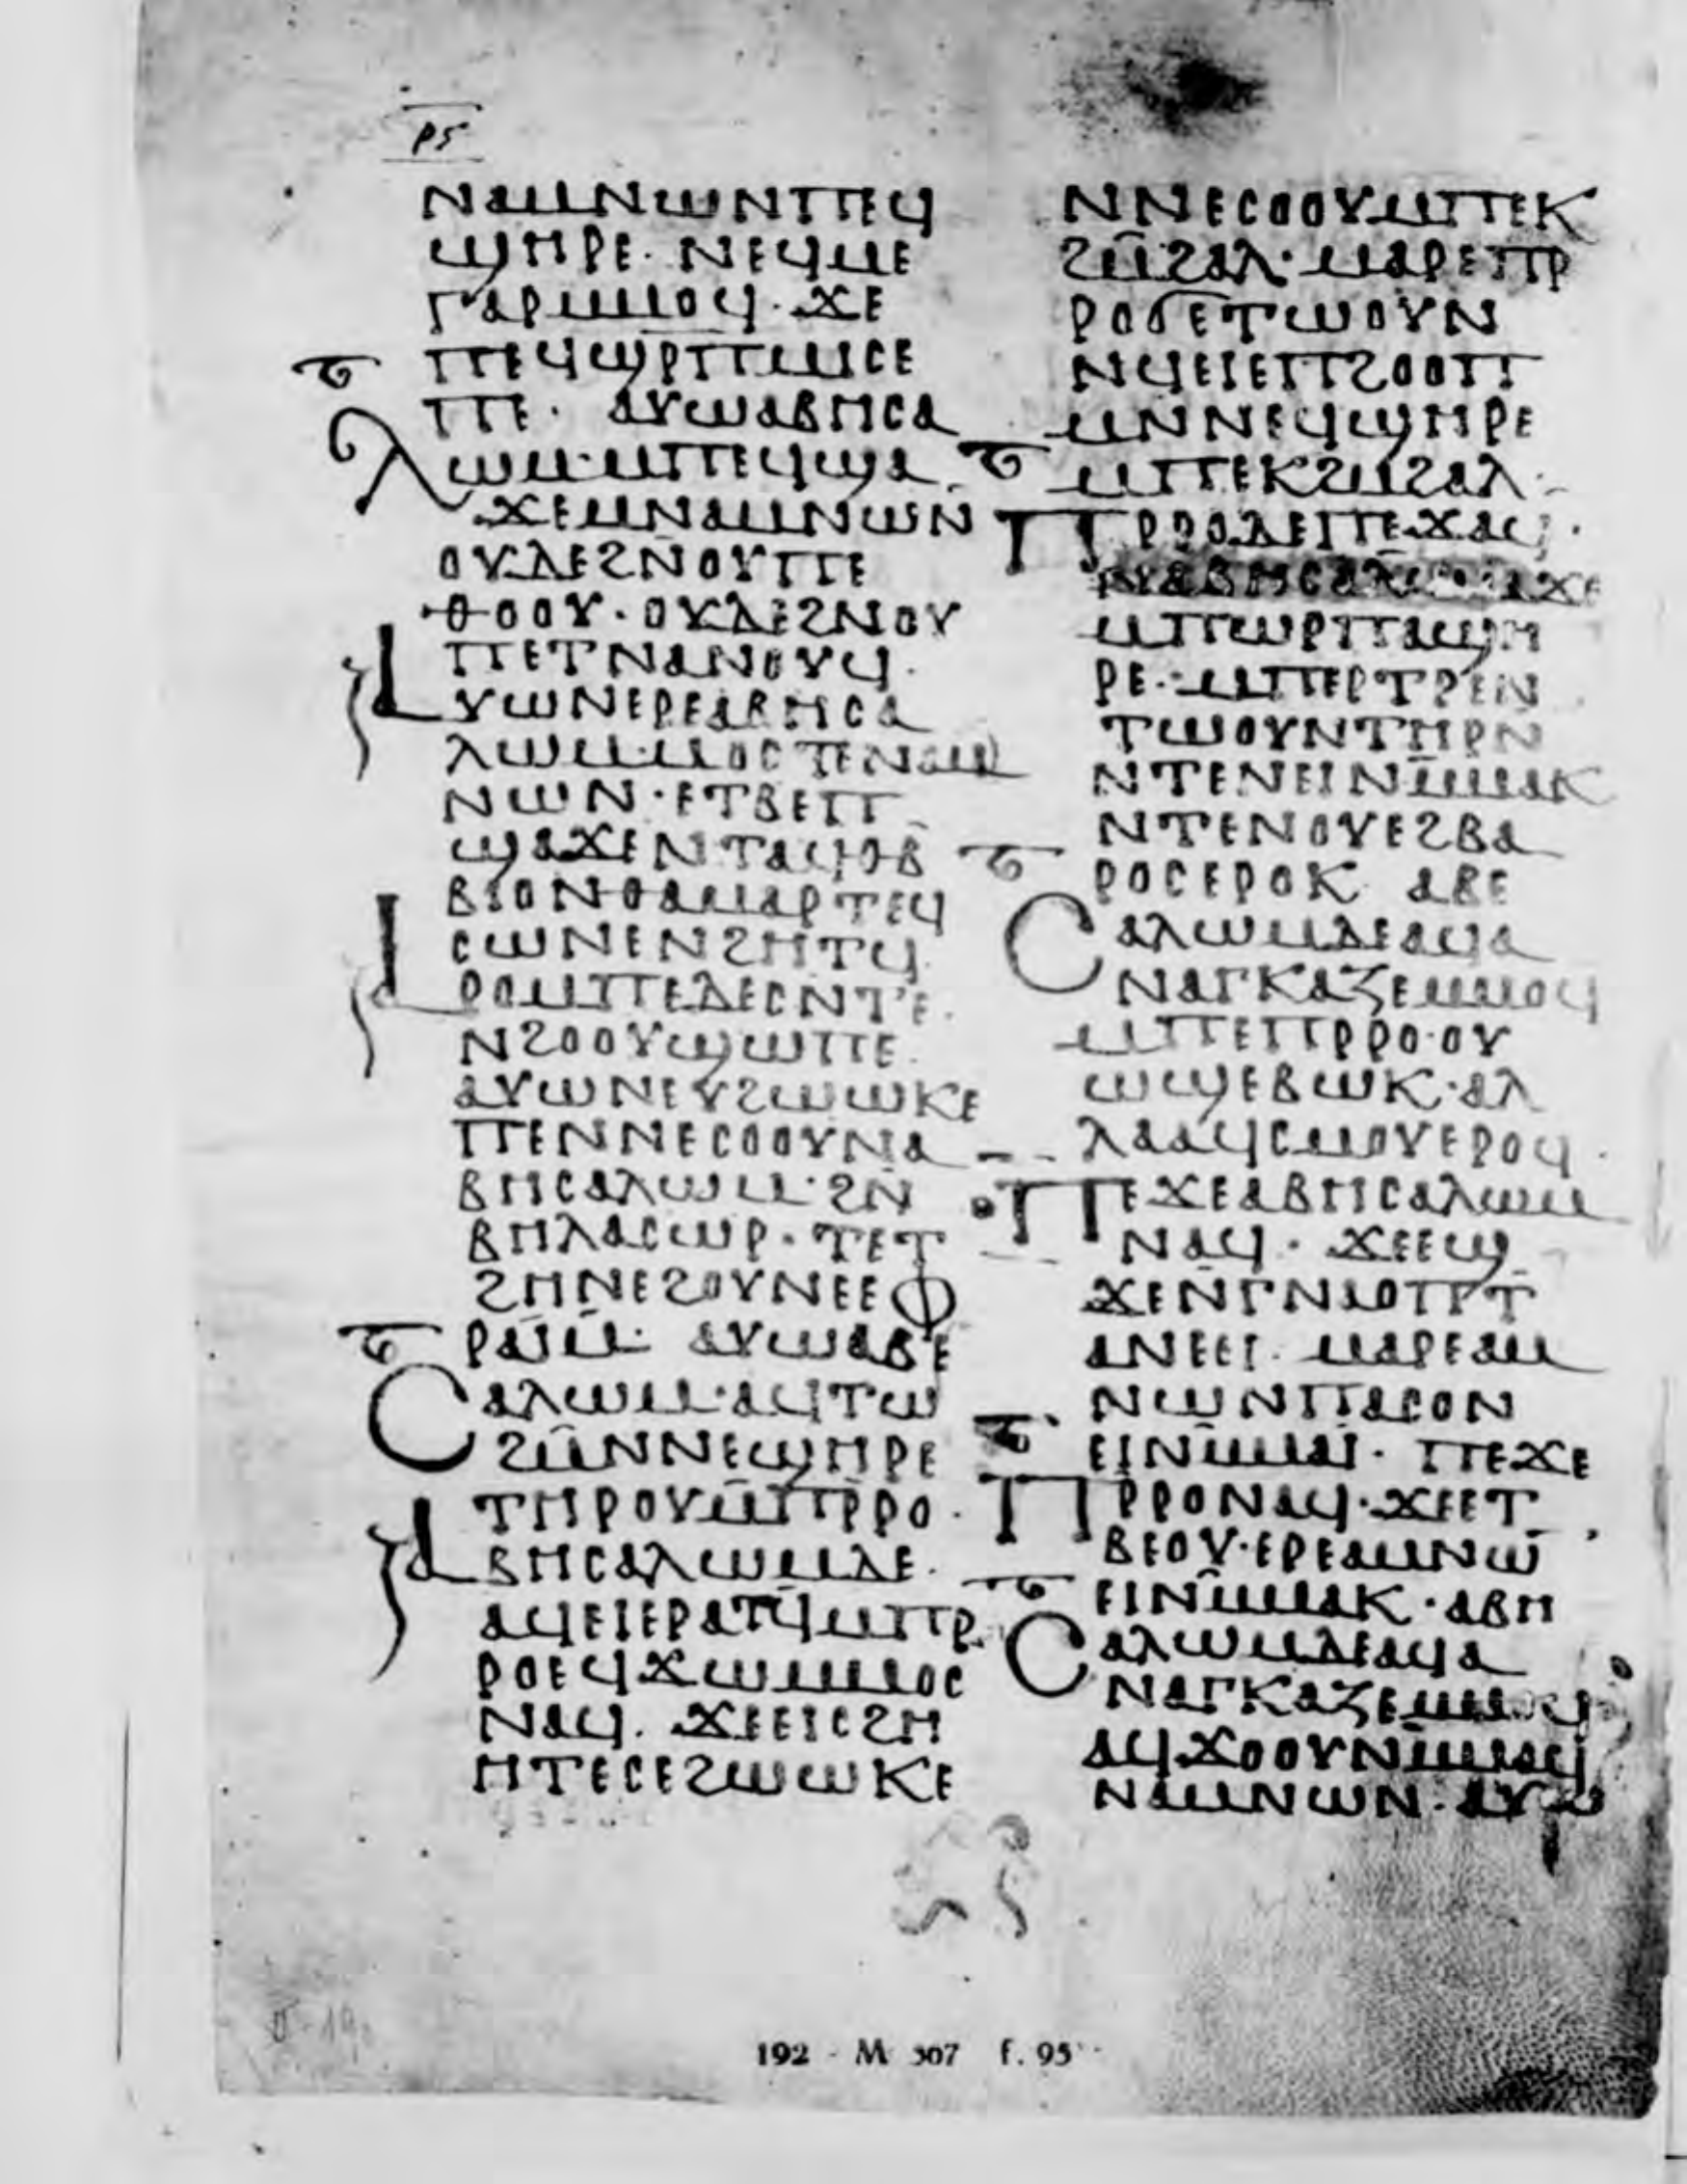 ⲣⲋ
ⲛⲁⲙⲛⲱⲛⲡⲉϥ
ϣⲏⲣⲉ· ⲛⲉϥⲙⲉ
ⲅⲁⲣⲙⲙⲟϥ· ϫⲉ
ⲡⲉϥϣⲣⲡⲙⲓⲥⲉ
ⲡⲉ· ⲁⲩⲱⲁⲃⲏⲥⲁ
ⲗⲱⲙ·ⲙⲡⲉϥϣⲁ
ϫⲉⲙⲛⲁⲙⲛⲱⲛ
ⲟⲩⲇⲉϩⲛⲟⲩⲡⲉ
ⲑⲟⲟⲩ· ⲟⲩⲇⲉϩⲛⲟⲩ
ⲡⲉⲧⲛⲁⲛⲟⲩϥ·
ⲁⲩⲱⲛⲉⲣⲉⲁⲃⲏⲥⲁ
ⲗⲱⲙ·ⲙⲟⲥⲧⲉⲛⲁⲙ
ⲛⲱⲛ·ⲉⲧⲃⲉⲡ
ϣⲁϫⲉⲛⲧⲁϥⲑⲃ
ⲃⲓⲟⲛⲑⲁⲙⲁⲣⲧⲉϥ
ⲥⲱⲛⲉⲛϩⲏⲧϥ
ⲁⲣⲟⲙⲡⲉⲇⲉⲥⲛⲧⲉ·
ⲛϩⲟⲟⲩϣⲱⲡⲉ·
ⲁⲩⲱⲛⲉⲩϩⲱⲱⲕⲉ
ⲡⲉⲛⲛⲉⲥⲟⲟⲩⲛⲁ
ⲃⲏⲥⲁⲗⲱⲙ·ϩⲛ
ⲃⲏⲗⲁⲥⲱⲣ· ⲧⲉⲧ
ϩⲏⲛⲉϩⲟⲩⲛⲉⲉⲫ
ⲣⲁⲓⲙ· ⲁⲩⲱⲁⲃⲉ
ⲥⲁⲗⲱⲙ·ⲁϥⲧⲱ
ϩⲙⲛⲛⲉϣⲏⲣⲉ
ⲧⲏⲣⲟⲩⲙⲡⲣⲣⲟ·
ⲁⲃⲏⲥⲁⲗⲱⲙⲇⲉ·
ⲁϥⲉⲓⲉⲣⲁⲧϥⲙⲡⲣ
ⲣⲟⲉϥϫⲱⲙⲙⲟⲥ
ⲛⲁϥ· ϫⲉⲉⲓⲥϩⲏ
ⲏⲧⲉⲥⲉϩⲱⲱⲕⲉ
ⲛⲛⲉⲥⲟⲟⲩⲙⲡⲉⲕ
ϩⲙϩⲁⲗ· ⲙⲁⲣⲉⲡⲣ
ⲣⲟϭⲉⲧⲱⲟⲩⲛ
ⲛϥⲉⲓⲉⲡϩⲟⲟⲡ
ⲙⲛⲛⲉϥϣⲏⲣⲉ
ⲙⲡⲉⲕϩⲙϩⲁⲗ·
ⲡⲣⲣⲟⲇⲉⲡⲉϫⲁϥ·
ⲙⲡⲱⲣⲡⲁϣⲏ
ⲣⲉ·ⲙⲡⲉⲣⲧⲣⲉⲛ
ⲧⲱⲟⲩⲛⲧⲏⲣⲛ
ⲛⲧⲉⲛⲉⲓⲛⲙⲙⲁⲕ
ⲛⲧⲉⲛⲟⲩⲉϩⲃⲁ
ⲣⲟⲥⲉⲣⲟⲕ ⲁⲃⲉ
ⲥⲁⲗⲱⲙⲇⲉⲁϥⲁ
ⲛⲁⲅⲕⲁⲍⲉⲙⲙⲟϥ
ⲙⲡⲉⲡⲣⲣⲟ·ⲟⲩ
ⲱϣⲉⲃⲱⲕ·ⲁⲗ
ⲗⲁⲁϥⲥⲙⲟⲩⲉⲣⲟϥ·
ⲡⲉϫⲉⲁⲃⲏⲥⲁⲗⲱⲙ
ⲛⲁϥ· ϫⲉⲉϣ
ϫⲉⲛⲅⲛⲏⲟⲩⲧ
ⲁⲛⲉⲉⲓ· ⲙⲁⲣⲉⲁⲙ
ⲛⲱⲛⲡⲁⲥⲟⲛ
ⲉⲓⲛⲙⲙⲁⲓ· ⲡⲉϫⲉ
ⲡⲣⲣⲟⲛⲁϥ·ϫⲉⲉⲧ
ⲃⲉⲟⲩ·ⲉⲣⲉⲁⲙⲛⲱ
ⲉⲓⲛⲙⲙⲁⲕ·ⲁⲃⲏ
ⲥⲁⲗⲱⲙⲇⲉⲁϥⲁ
ⲛⲁⲅⲕⲁⲍⲉⲙⲙⲟϥ
ⲁϥϫⲟⲟⲩⲛⲙⲙⲁϥ
ⲛⲁⲙⲛⲱⲛ·ⲁⲩⲱ
192 - M 567 f. 95